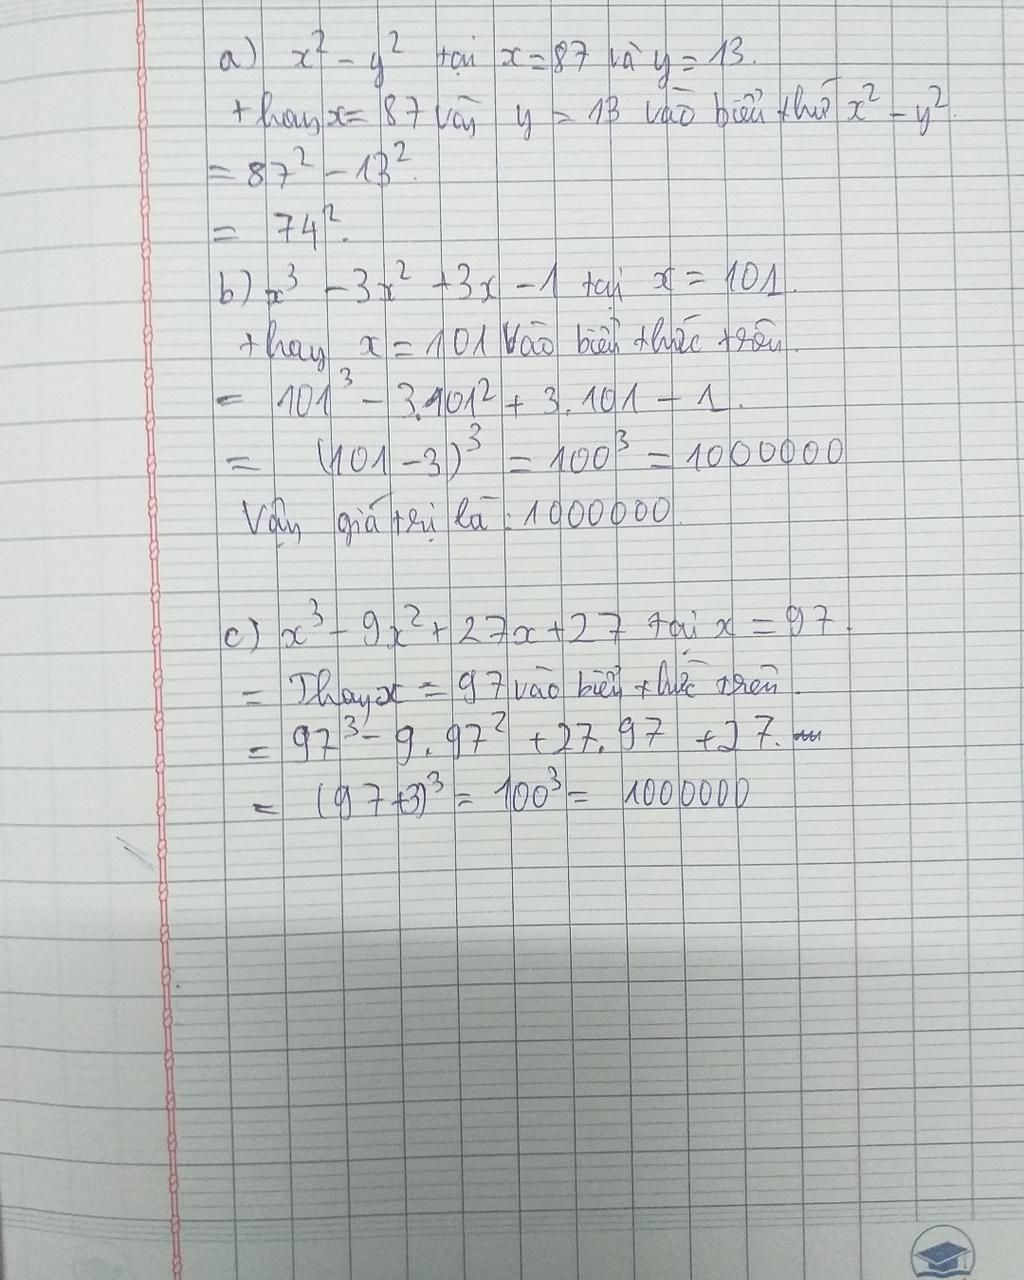 a) x² - y² tại x = 87 và y = 13.
thay x = 87 vày y = 13 vào biểu thứ x² - y².
= 87² - 13².
= 74².
b) x³ - 3x² + 3x - 1 tại x = 101.
thay x = 101 vào biểu thức trên.
= 101³ - 3.101² + 3.101 - 1.
= (101 - 3)³ = 100³ = 1000000
Vậy giá trị là : 1000000.
c) x³ - 9x² + 27x + 27 tại x = 97.
= Thay x = 97 vào biểu thức trên.
= 97³ - 9.97² + 27.97 + 27.
= (97+3)³ = 100³ = 1000000